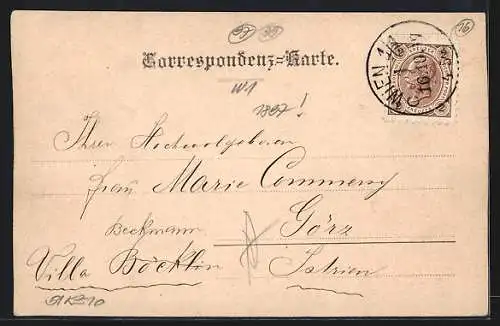 16
Correspondenz-Karte.
WIEN 1/1
W1
1897!
Ihrer Hochwolgeboren
Frau Marie Commeny
Beckmann
Görz
Villa Böcklin
Istrien